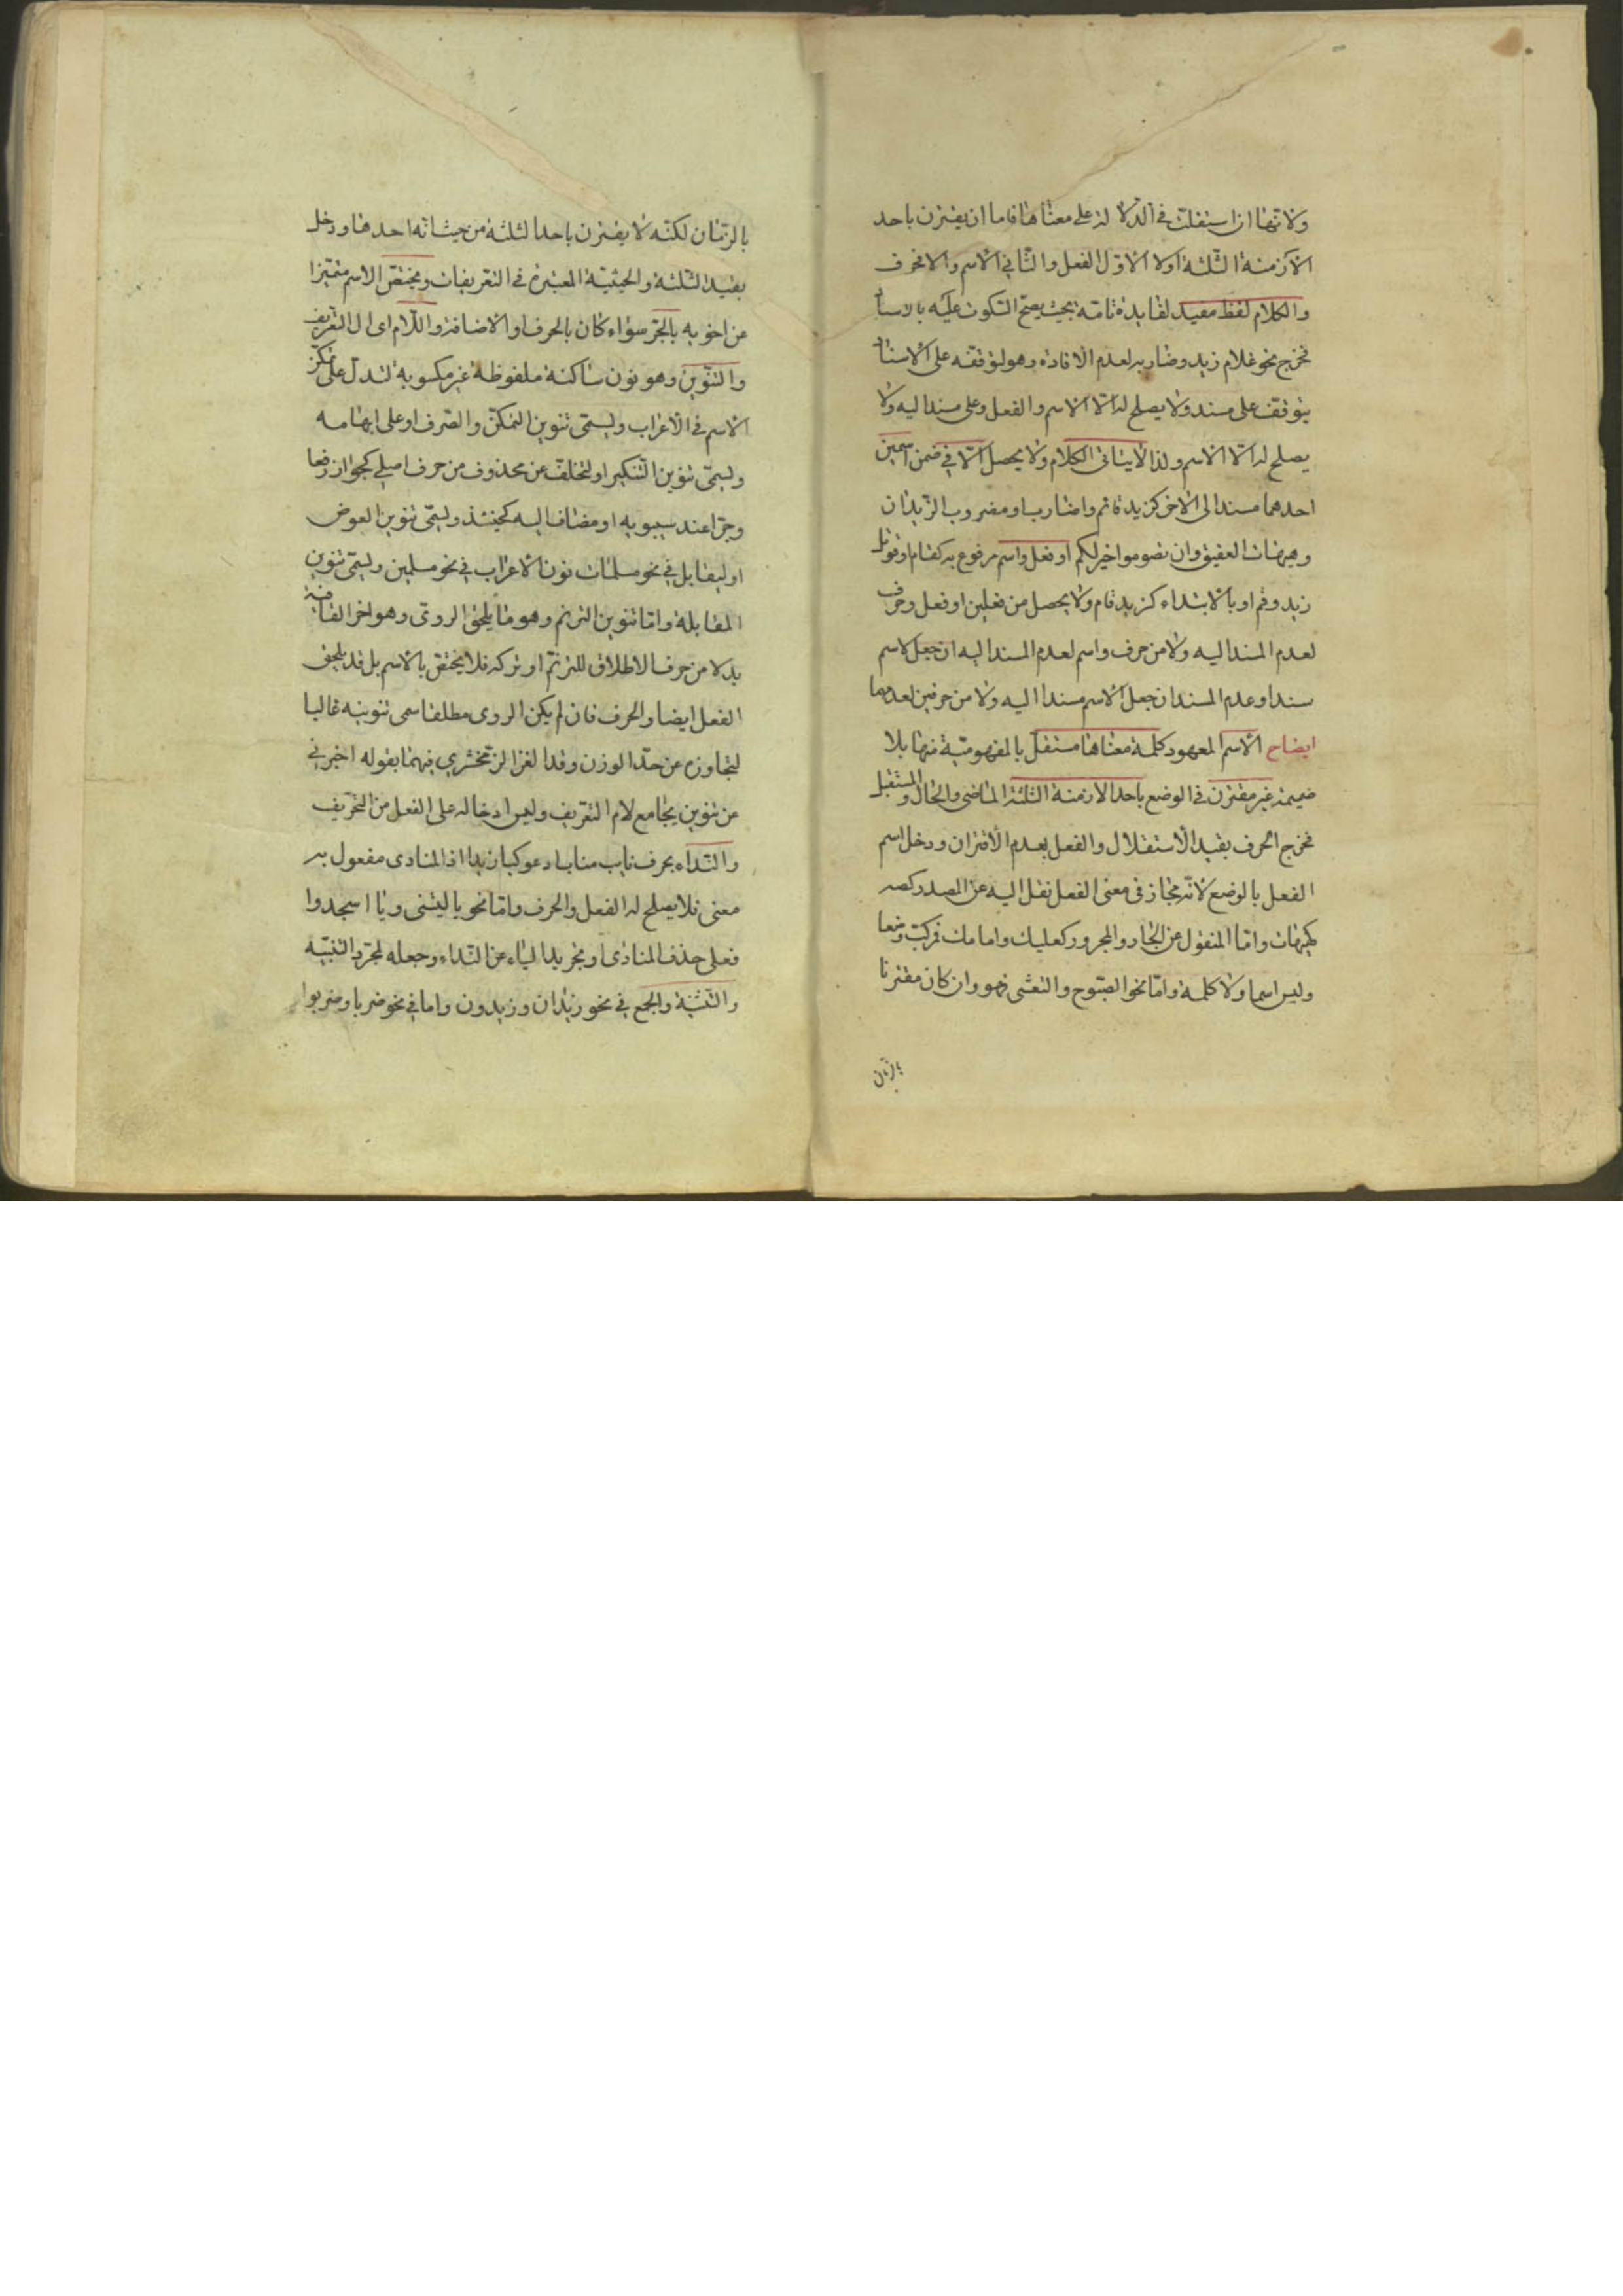 ولانها ان استقلت في الدلالة على معناها فاما ان يقترن باحد
الازمنة الثلثة اولا الاول الفعل والثاني الاسم والا فحرف
والكلام لفظ مفيد لفايدة تامة بحيث يصح السكوت عليه بالاسناد
فخرج نحو غلام زيد وضاربه لعدم الافادة وهو لتوقفه على الاسناد
يتوقف على مسند ولا يصلح له الا الاسم والفعل وعلى مسند اليه ولا
يصلح له الا الاسم ولذا لا يتاتى الكلام ولا يحصل الا في ضمن اسمين
احدهما مسند الى الاخر كزيد قائم واضارب او مضروب الزيدان
وهيهات العقيق وان تصوموا خير لكم او فعل واسم مرفوع به كقام او قوتل
زيد وقم او بالابتداء كزيد قام ولا يحصل من فعلين او فعل وحرف
لعدم المسند اليه ولا من حرف واسم لعدم المسند اليه ان جعل الاسم
مسندا وعدم المسند ان جعل الاسم مسندا اليه ولا من حرفين لعدمهما
ايضاح الاسم المعهود كلمة معناها مستقل بالمفهومية منها بلا
ضميمة غير مقترن في الوضع باحد الازمنة الثلثة الماضي والحال والمستقبل
فخرج الحرف بقيد الاستقلال والفعل بعدم الاقتران ودخل اسم
الفعل بالوضع لانه مجاز في معنى الفعل نقل اليه عن المصدر كصه
كهيهات واما المنقول عن الجار والمجرور كعليك وامامك فمركب وضعا
وليس اسما ولا كلمة واما نحو الصبوح والتعشى فهو وان كان مقترنا
بالزمان
بالزمان لكنه لا يقترن باحد الثلثة من حيث انه احدها ودخل
بقيد الثلثة والحيثية المعتبرة في التعريفات ويختص الاسم متميزا
عن اخويه بالجر سواء كان بالحرف او الاضافة واللام اى ال التعريف
والتنوين وهو نون ساكنة ملفوظة غير مكتوبة لتدل على تمكن
الاسم في الاعراب ويسمى تنوين التمكن والصرف او على ابهامه
ويسمى تنوين التنكير او لتخلف عن محذوف من حرف اصلي كجوار رفعا
وجرا عند سيبويه او مضاف اليه كحينئذ ويسمى تنوين العوض
او ليقابل في نحو مسلمات نون الاعراب في نحو مسلمين ويسمى تنوين
المقابلة واما تنوين الترنم وهو ما يلحق الروى وهو اخر القافية
بدلا من حرف الاطلاق للترنم او تركه فلا يختص بالاسم بل قد يلحق
الفعل ايضا والحرف فان لم يكن الروى مطلقا سمى تنوينه غاليا
لتجاوزه عن حد الوزن وقد الغز الزمخشري فيهما بقوله اخبرني
عن تنوين يجامع لام التعريف وليس ادخاله على الفعل من التحريف
والنداء بحرف ناب مناب ادعو كيا زيد اذ المنادى مفعول به
معنى فلا يصلح له الفعل والحرف واما نحو يا ليتنى ويا اسجدوا
فعلى حذف المنادى او تجريد الياء عن النداء وجعله لمجرد التنبيه
والتثنية والجمع في نحو زيدان وزيدون واما في نحو ضربا وضربوا